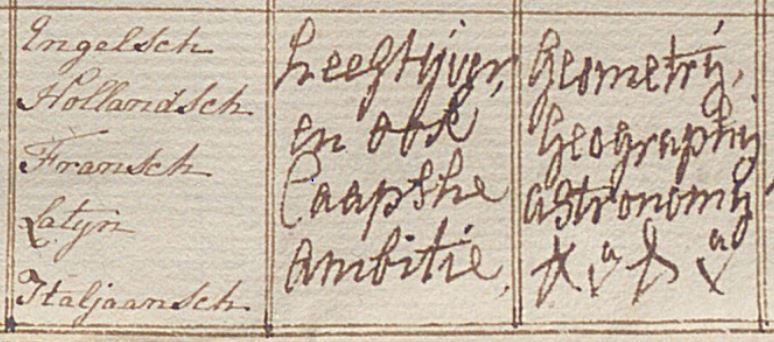 Engelsch
Hollandsch
Fransch
Latyn
Italjaansch
heeft ijver,
en ook
Caapshe
ambitie,
geometrij,
geographij
astronomij